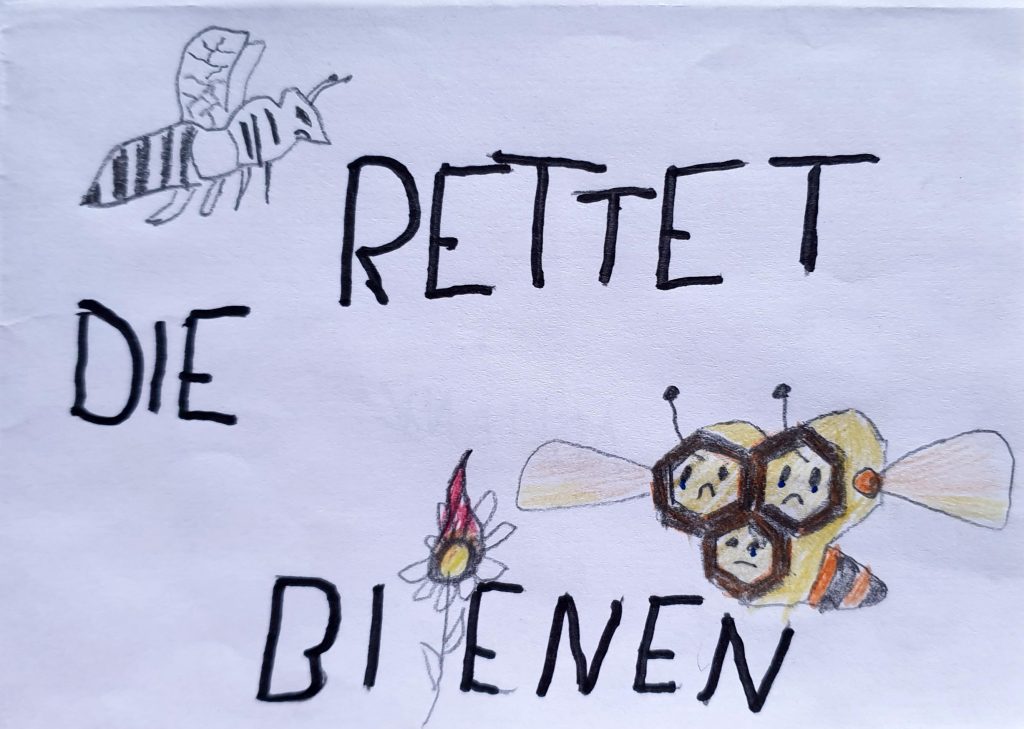 RETTET
DIE
BIENEN